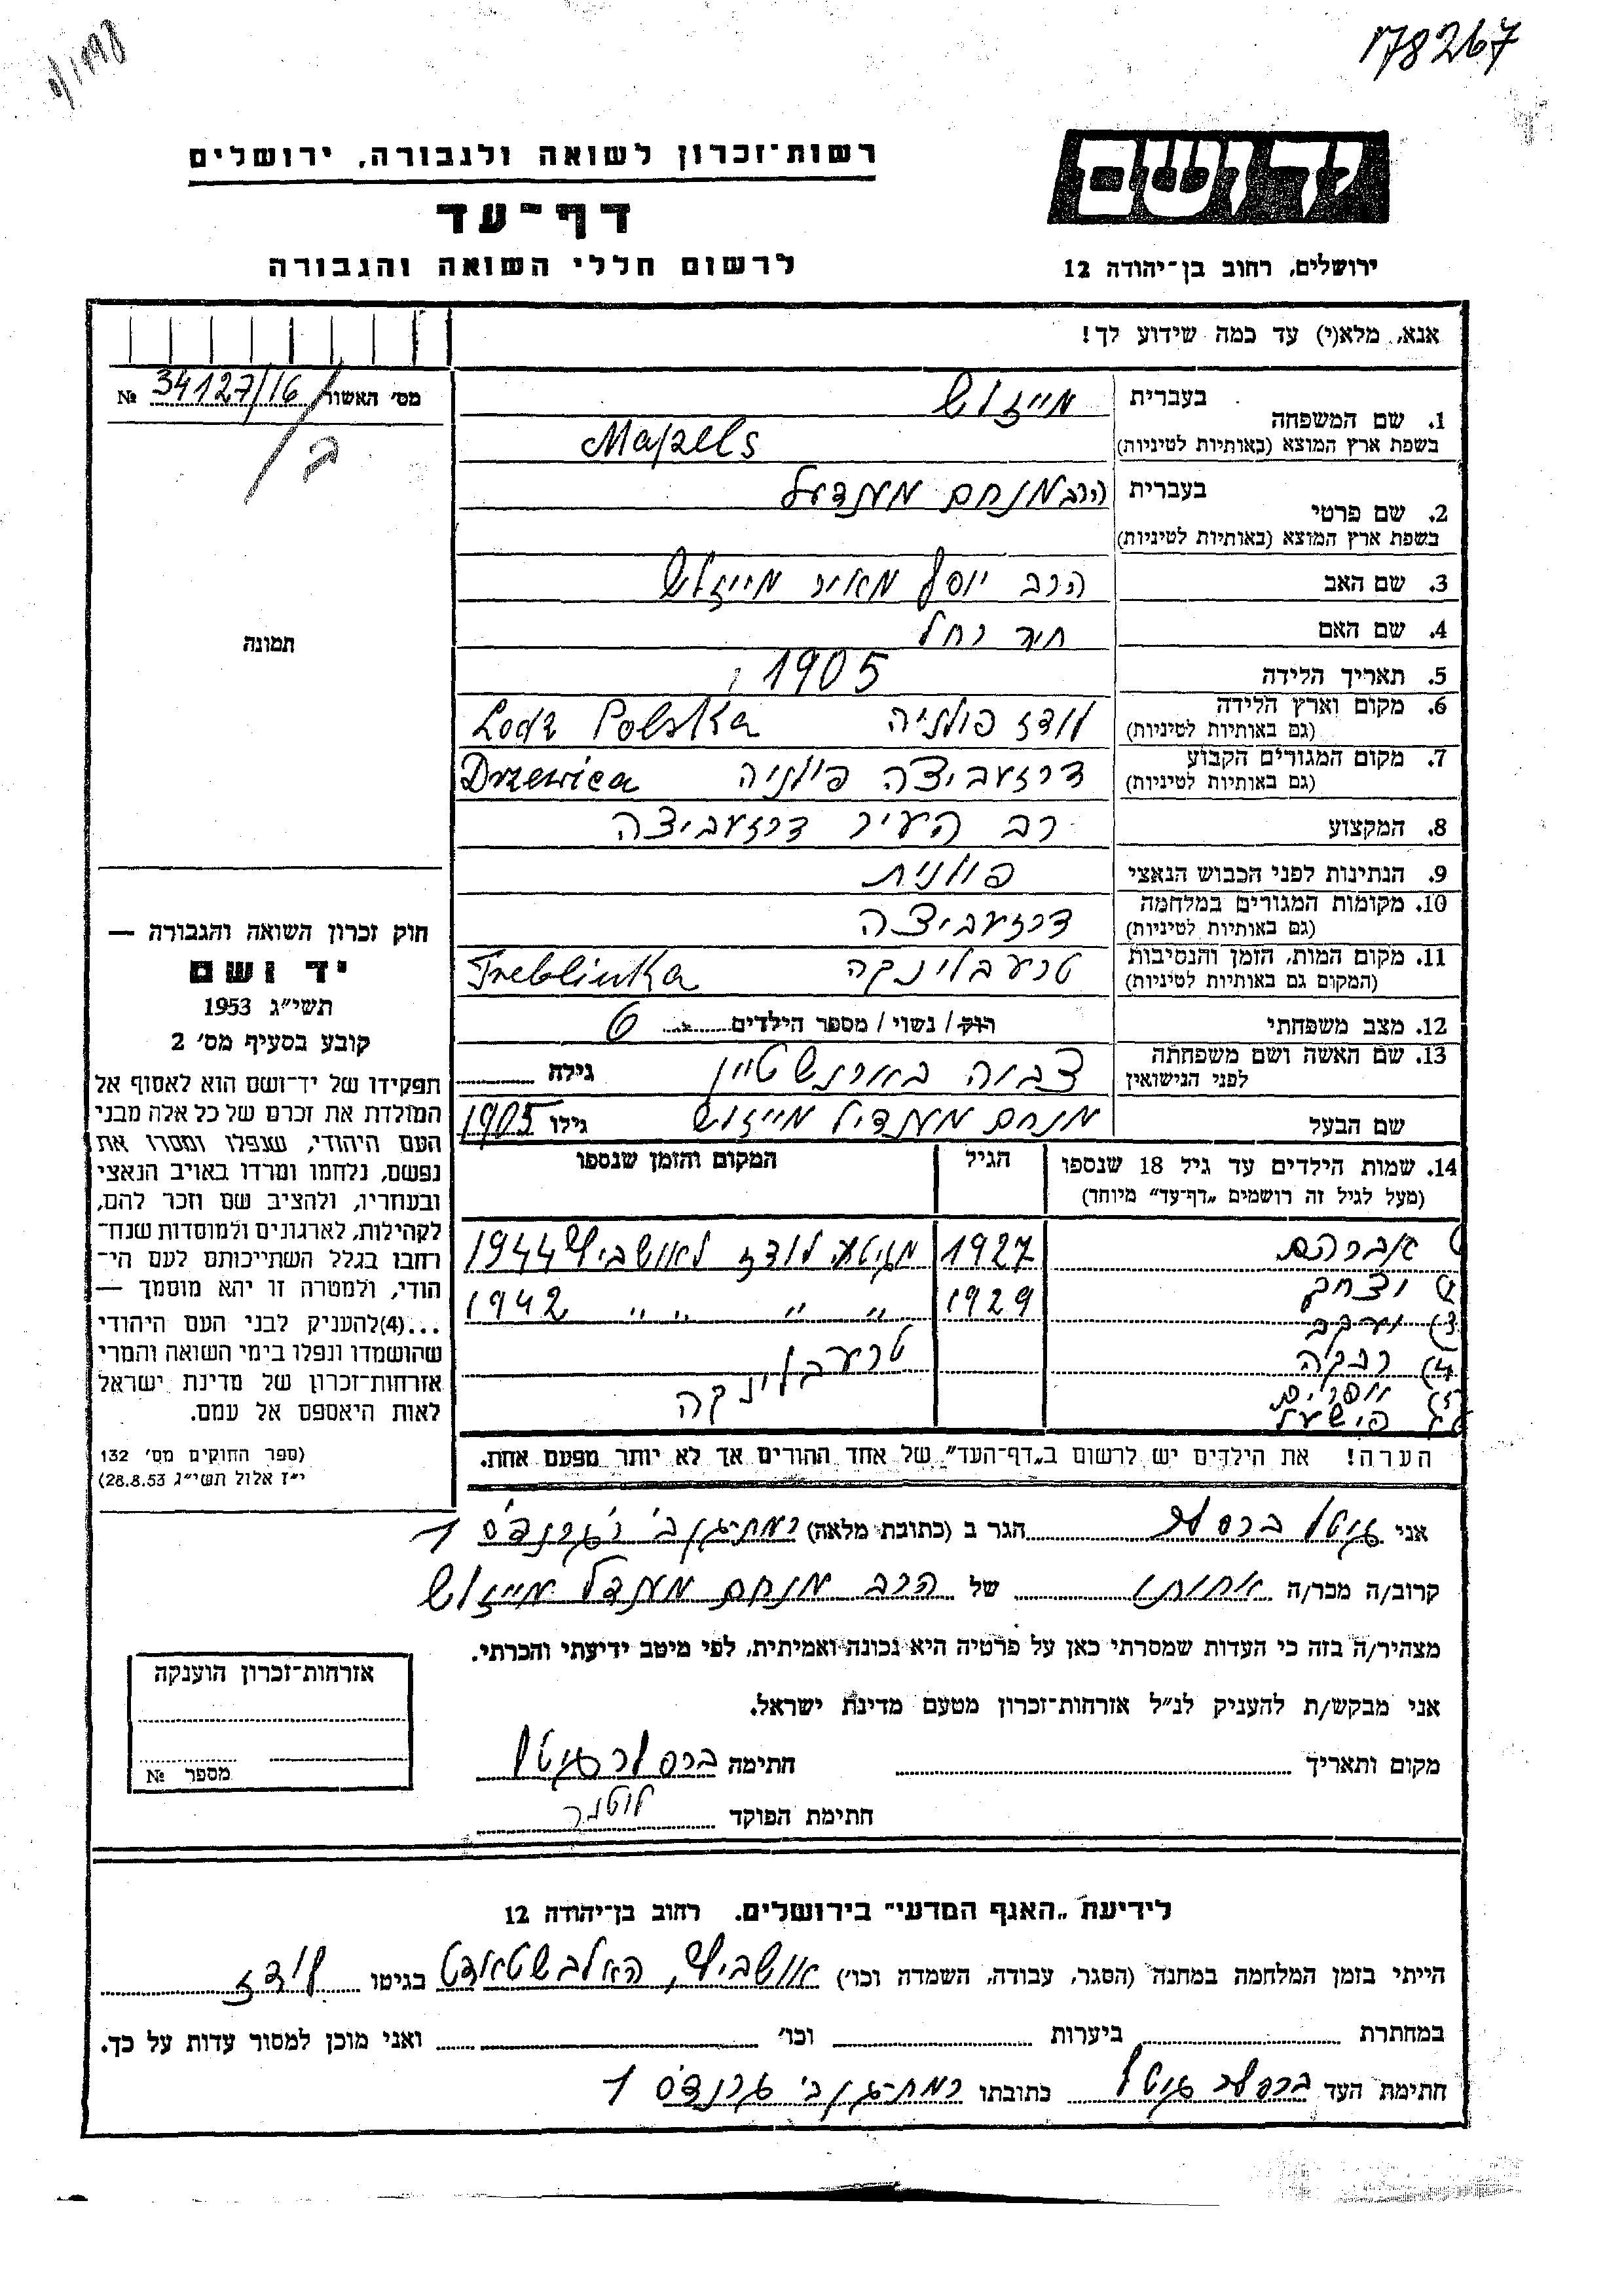 178267
רשות־זכרון לשואה ולגבורה, ירושלים
יד ושם
דף־עד
לרשום חללי השואה והגבורה
ירושלים, רחוב בן־יהודה 12
אנא, מלא(י) עד כמה שידוע לך!
מס׳ האשור 34127/16 №
תמונה
1. שם המשפחה
בעברית מייזלש
בשפת ארץ המוצא (באותיות לטיניות) Majzels
2. שם פרטי
בעברית הרב מנחם מענדעל
בשפת ארץ המוצא (באותיות לטיניות)
3. שם האב הרב יוסף מאיר מייזלש
4. שם האם רחל
5. תאריך הלידה 1905
6. מקום וארץ הלידה לודז פולניה Lodz Polska
(גם באותיות לטיניות)
7. מקום המגורים הקבוע דרזעביצה פולניה Drzewica
(גם באותיות לטיניות)
8. המקצוע רב העיר דרזעביצה
9. הנתינות לפני הכבוש הנאצי פולנית
10. מקומות המגורים במלחמה דרזעביצה
(גם באותיות לטיניות)
11. מקום המות, הזמן והנסיבות טרעבלינקה Treblinka
(המקום גם באותיות לטיניות)
12. מצב משפחתי רוק/ נשוי/ מספר הילדים 6
13. שם האשה ושם משפחתה
לפני הנישואין בארנשטיין גילה
שם הבעל מנחם מענדיל מייזלש גילו 1905
14. שמות הילדים עד גיל 18 שנספו הגיל המקום והזמן שנספו
(מעל לגיל זה רושמים „דף־עד” מיוחד)
אברהם 1927 מגיטע לודז לאושביץ 1944
2) יצחק 1929 " " " " 1942
3) יעקב
4) רבקה טרעבלינקה
5)
6) פישעל
הערה! את הילדים יש לרשום ב„דף־העד”, של אחד ההורים אך לא יותר מפעם אחת.
חוק זכרון השואה והגבורה —
יד ושם
תשי״ג 1953
קובע בסעיף מס׳ 2
תפקידו של יד־ושם הוא לאסוף אל
המולדת את זכרם של כל אלה מבני
העם היהודי, שנפלו ומסרו את
נפשם, נלחמו ומרדו באויב הנאצי
ובעוזריו, ולהציב שם וזכר להם,
לקהילות, לארגונים ולמוסדות שנח־
רחבו בגלל השתייכותם לעם הי־
הודי, ולמטרה זו יהא מוסמך —
...(4)להעניק לבני העם היהודי
שהושמדו ונפלו בימי השואה והמרי
אזרחות־זכרון של מדינת ישראל
לאות היאספם אל עמם.
(ספר החוקים מס׳ 132
י״ז אלול תשי״ג 28.8.53)
אני גיטל ברסלר הגר ב (כתובת מלאה) רמת־גן 1
קרוב/ה מכר/ה אחותו של הרב מנחם מענדל מייזלש
מצהיר/ה בזה כי העדות שמסרתי כאן על פרטיה היא נכונה ואמיתית, לפי מיטב ידיעתי והכרתי.
אני מבקש/ת להעניק לנ״ל אזרחות־זכרון מטעם מדינת ישראל.
מקום ותאריך חתימה ברסלר גיטל
חתימת הפוקד
אזרחות־זכרון הוענקה
מספר №
לידיעת „האגף המדעי” בירושלים. רחוב בן־יהודה 12
הייתי בזמן המלחמה במחנה (הסגר, עבודה, השמדה וכו׳) אושביץ, האלבשטאדט בגיטו לודז
במחתרת ביערות וכו׳ ואני מוכן למסור עדות על כך.
חתימת העד ברסלר גיטל כתובתו רמת־גן 1